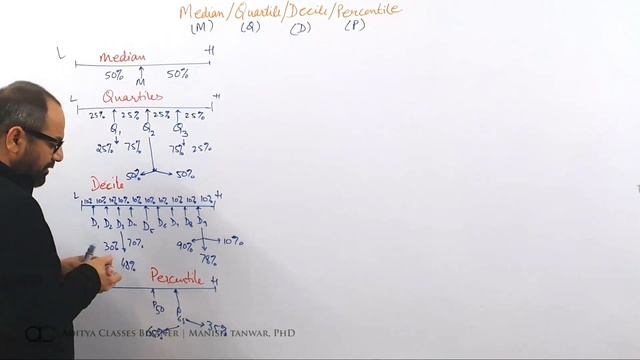 Median/Quartile/Decile/Percentile
(M) (Q) (D) (P)
L Median H
50% 50%
M
Quartiles
L H
25% 25% 25% 25%
Q1 Q2 Q3
25% 75% 75% 25%
50% 50%
Decile
L H
10% 10% 10% 10% 10% 10% 10% 10% 10% 10%
D1 D2 D3 D4 D5 D6 D7 D8 D9
30% 70% 90% 10%
48% 78%
Percentile H
P50 P
35%
MANISH TANWAR, PhD